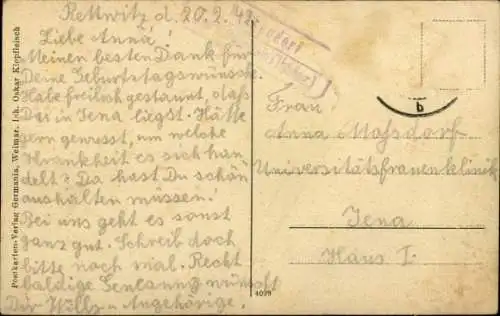 Rettwitz d. 20.2.42.
Liebe Anna!
Meinen besten Dank für
Deine Geburtstagswünsche.
Habe freilich gestaunt, daß
Du in Jena liegst. Hätte
gern gewusst, um welche
Krankheit es sich han
delt? Da hast Du schön
aushalten müssen.
Bei uns geht es sonst
ganz gut. Schreib doch
bitte noch mal. Recht
baldige Genesung wünscht
Dir Willy u. Angehörige.
Postkarten-Verlag Germania, Weimar, Inh. Oskar Kiepfleisch
b
Frau
Anna Mossdorf
Universitätsfrauenklinik
Jena
Haus I.
4099